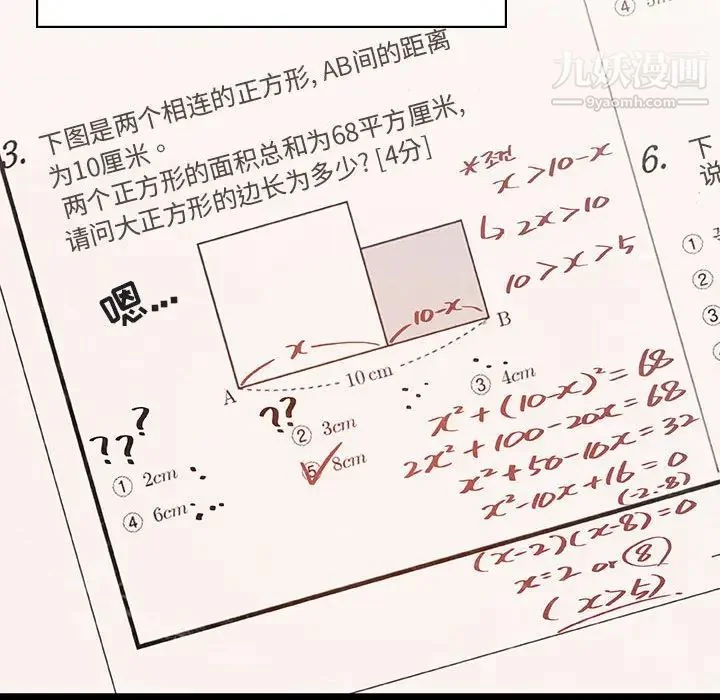 ④
九妖漫画
9yaomh.com
3. 下图是两个相连的正方形, AB间的距离
为10厘米。
两个正方形的面积总和为68平方厘米,
请问大正方形的边长为多少? [4分]
*조건
x>10-x
↳ 2x>10
10>x>5
6. 下
说
①
②
③
嗯…
x
10-x
A
B
10 cm
???
??
① 2cm
② 3cm
③ 4cm
④ 6cm
⑤ 8cm
x²+(10-x)²=68
2x²+100-20x=68
x²+50-10x=32
x²-10x+16=0
(-2.-8)
(x-2)(x-8)=0
x=2 or 8
(x>5)